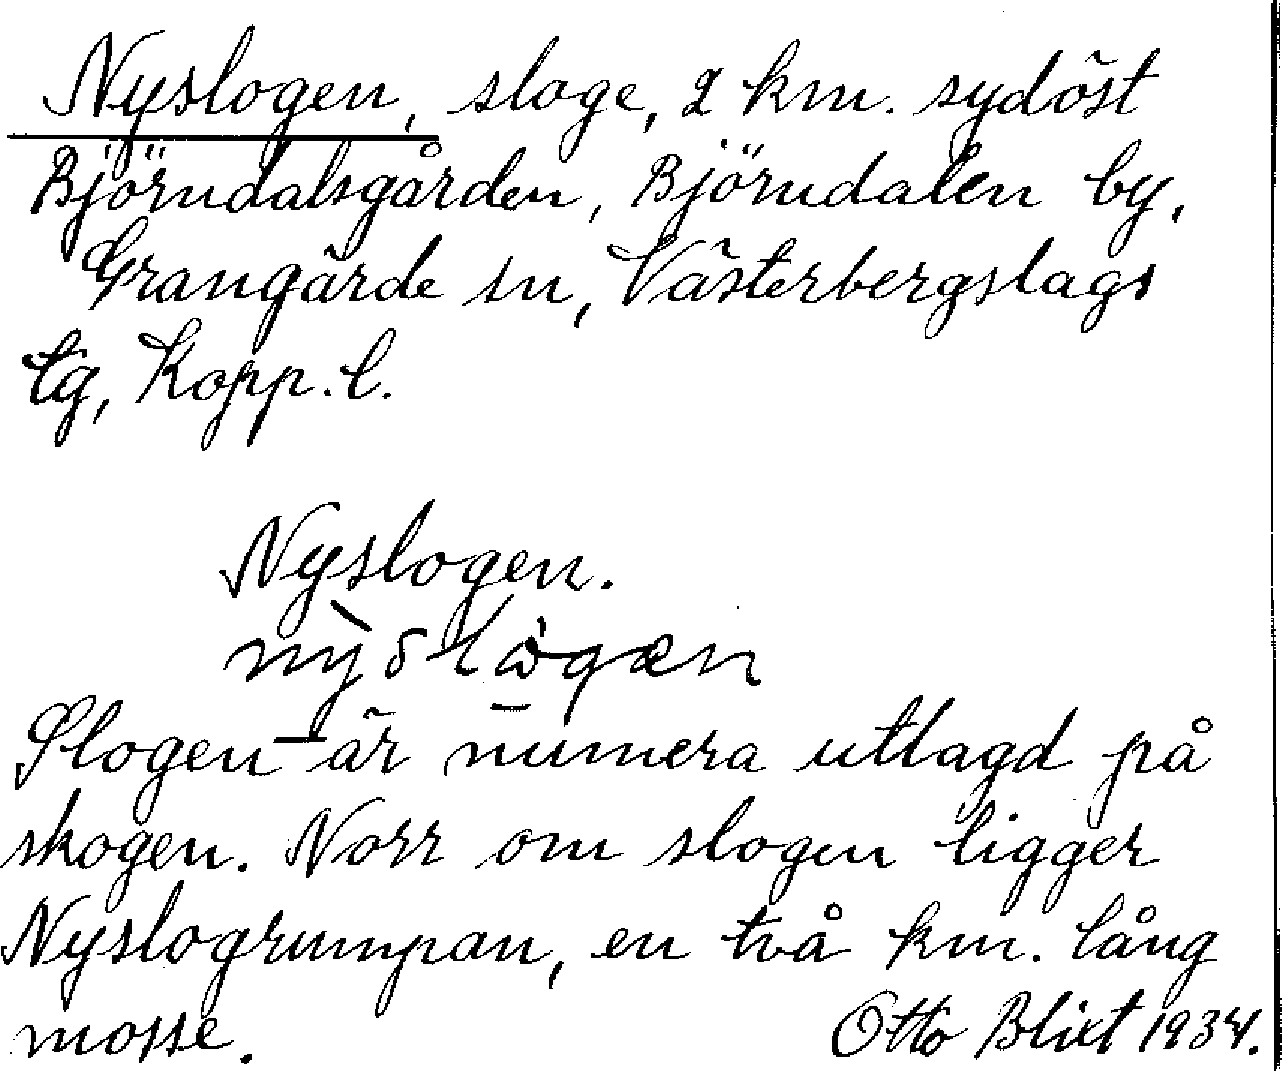 Nyslogen, sloge, 2 km. sydöst
Björndalsgården, Björndalen by,
Grangärde sn, Västerbergslags
tg, Kopp. l.
Nyslogen.
nỳslògæn
Slogen är numera utlagd på
skogen. Norr om slogen ligger
Nyslogrumpan, en två km. lång
mosse.
Otto Blixt 1934.